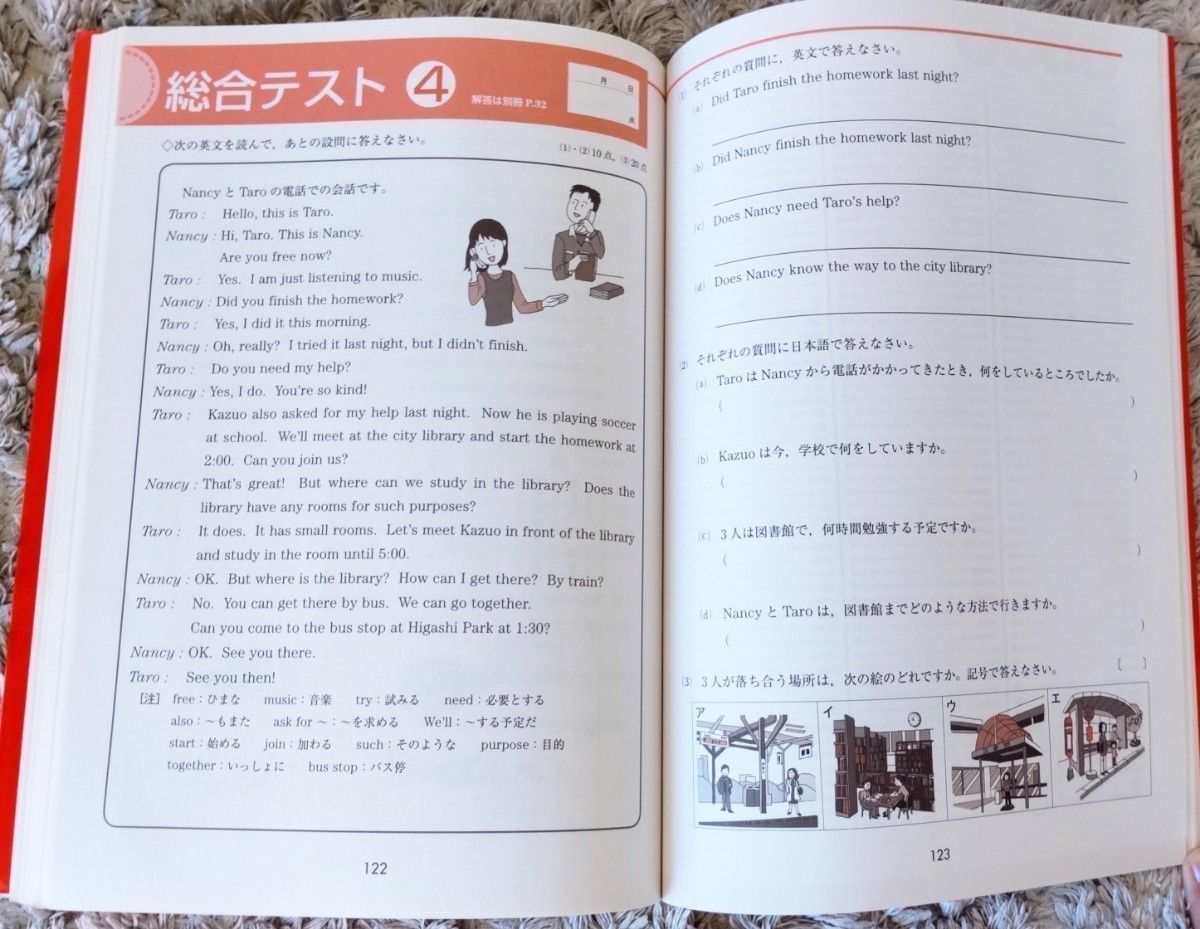 総合テスト 4
解答は別冊 P.32
月 日
点
◇次の英文を読んで，あとの設問に答えなさい。
(1)・(2)10点，(3)20点
Nancy と Taro の電話での会話です。
Taro : Hello, this is Taro.
Nancy : Hi, Taro. This is Nancy.
Are you free now?
Taro : Yes. I am just listening to music.
Nancy : Did you finish the homework?
Taro : Yes, I did it this morning.
Nancy : Oh, really? I tried it last night, but I didn't finish.
Taro : Do you need my help?
Nancy : Yes, I do. You're so kind!
Taro : Kazuo also asked for my help last night. Now he is playing soccer
at school. We'll meet at the city library and start the homework at
2:00. Can you join us?
Nancy : That's great! But where can we study in the library? Does the
library have any rooms for such purposes?
Taro : It does. It has small rooms. Let's meet Kazuo in front of the library
and study in the room until 5:00.
Nancy : OK. But where is the library? How can I get there? By train?
Taro : No. You can get there by bus. We can go together.
Can you come to the bus stop at Higashi Park at 1:30?
Nancy : OK. See you there.
Taro : See you then!
［注］ free：ひまな music：音楽 try：試みる need：必要とする
also：～もまた ask for ～：～を求める We'll：～する予定だ
start：始める join：加わる such：そのような purpose：目的
together：いっしょに bus stop：バス停
122
(1) それぞれの質問に，英文で答えなさい。
(a) Did Taro finish the homework last night?
(b) Did Nancy finish the homework last night?
(c) Does Nancy need Taro's help?
(d) Does Nancy know the way to the city library?
(2) それぞれの質問に日本語で答えなさい。
(a) Taro は Nancy から電話がかかってきたとき，何をしているところでしたか。
( )
(b) Kazuo は今，学校で何をしていますか。
( )
(c) 3人は図書館で，何時間勉強する予定ですか。
( )
(d) Nancy と Taro は，図書館までどのような方法で行きますか。
( )
(3) 3人が落ち合う場所は，次の絵のどれですか。記号で答えなさい。 [ ]
ア イ ウ エ
123